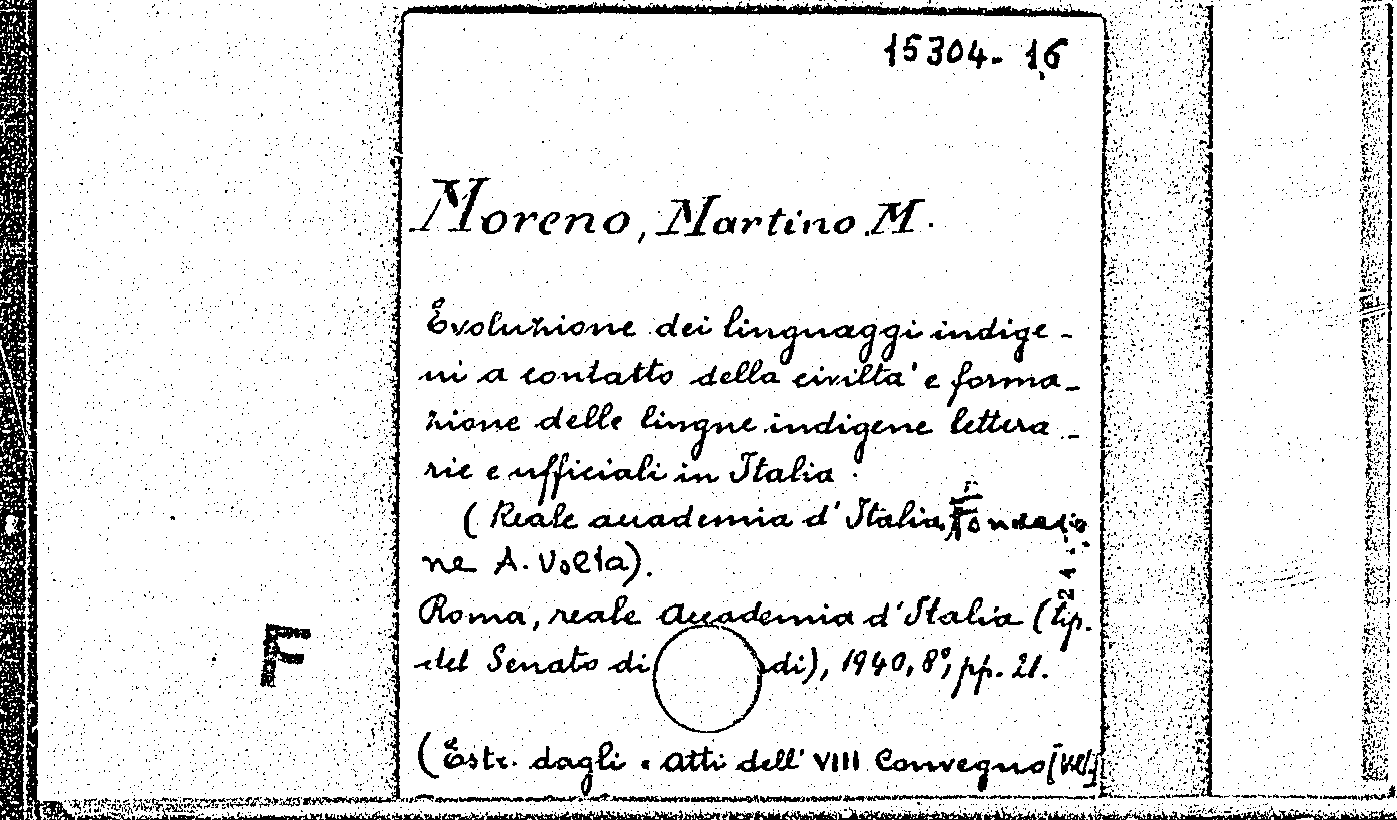 15304. 16
Moreno, Martino M.
Evoluzione dei linguaggi indige-
ni a contatto della civilta' e forma-
zione delle lingue indigene lettera-
rie e ufficiali in Italia.
(Reale accademia d'Italia, Fondazio
ne A. Volta).
Roma, reale Accademia d'Italia (tip.
del Senato di di), 1940, 8°, pp. 21.
(Estr. dagli "Atti dell' VIII Convegno
F